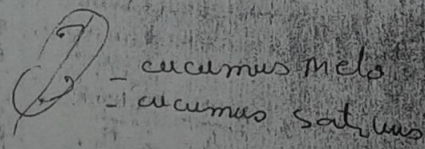 - cucumus Melo
- cucumus sativus